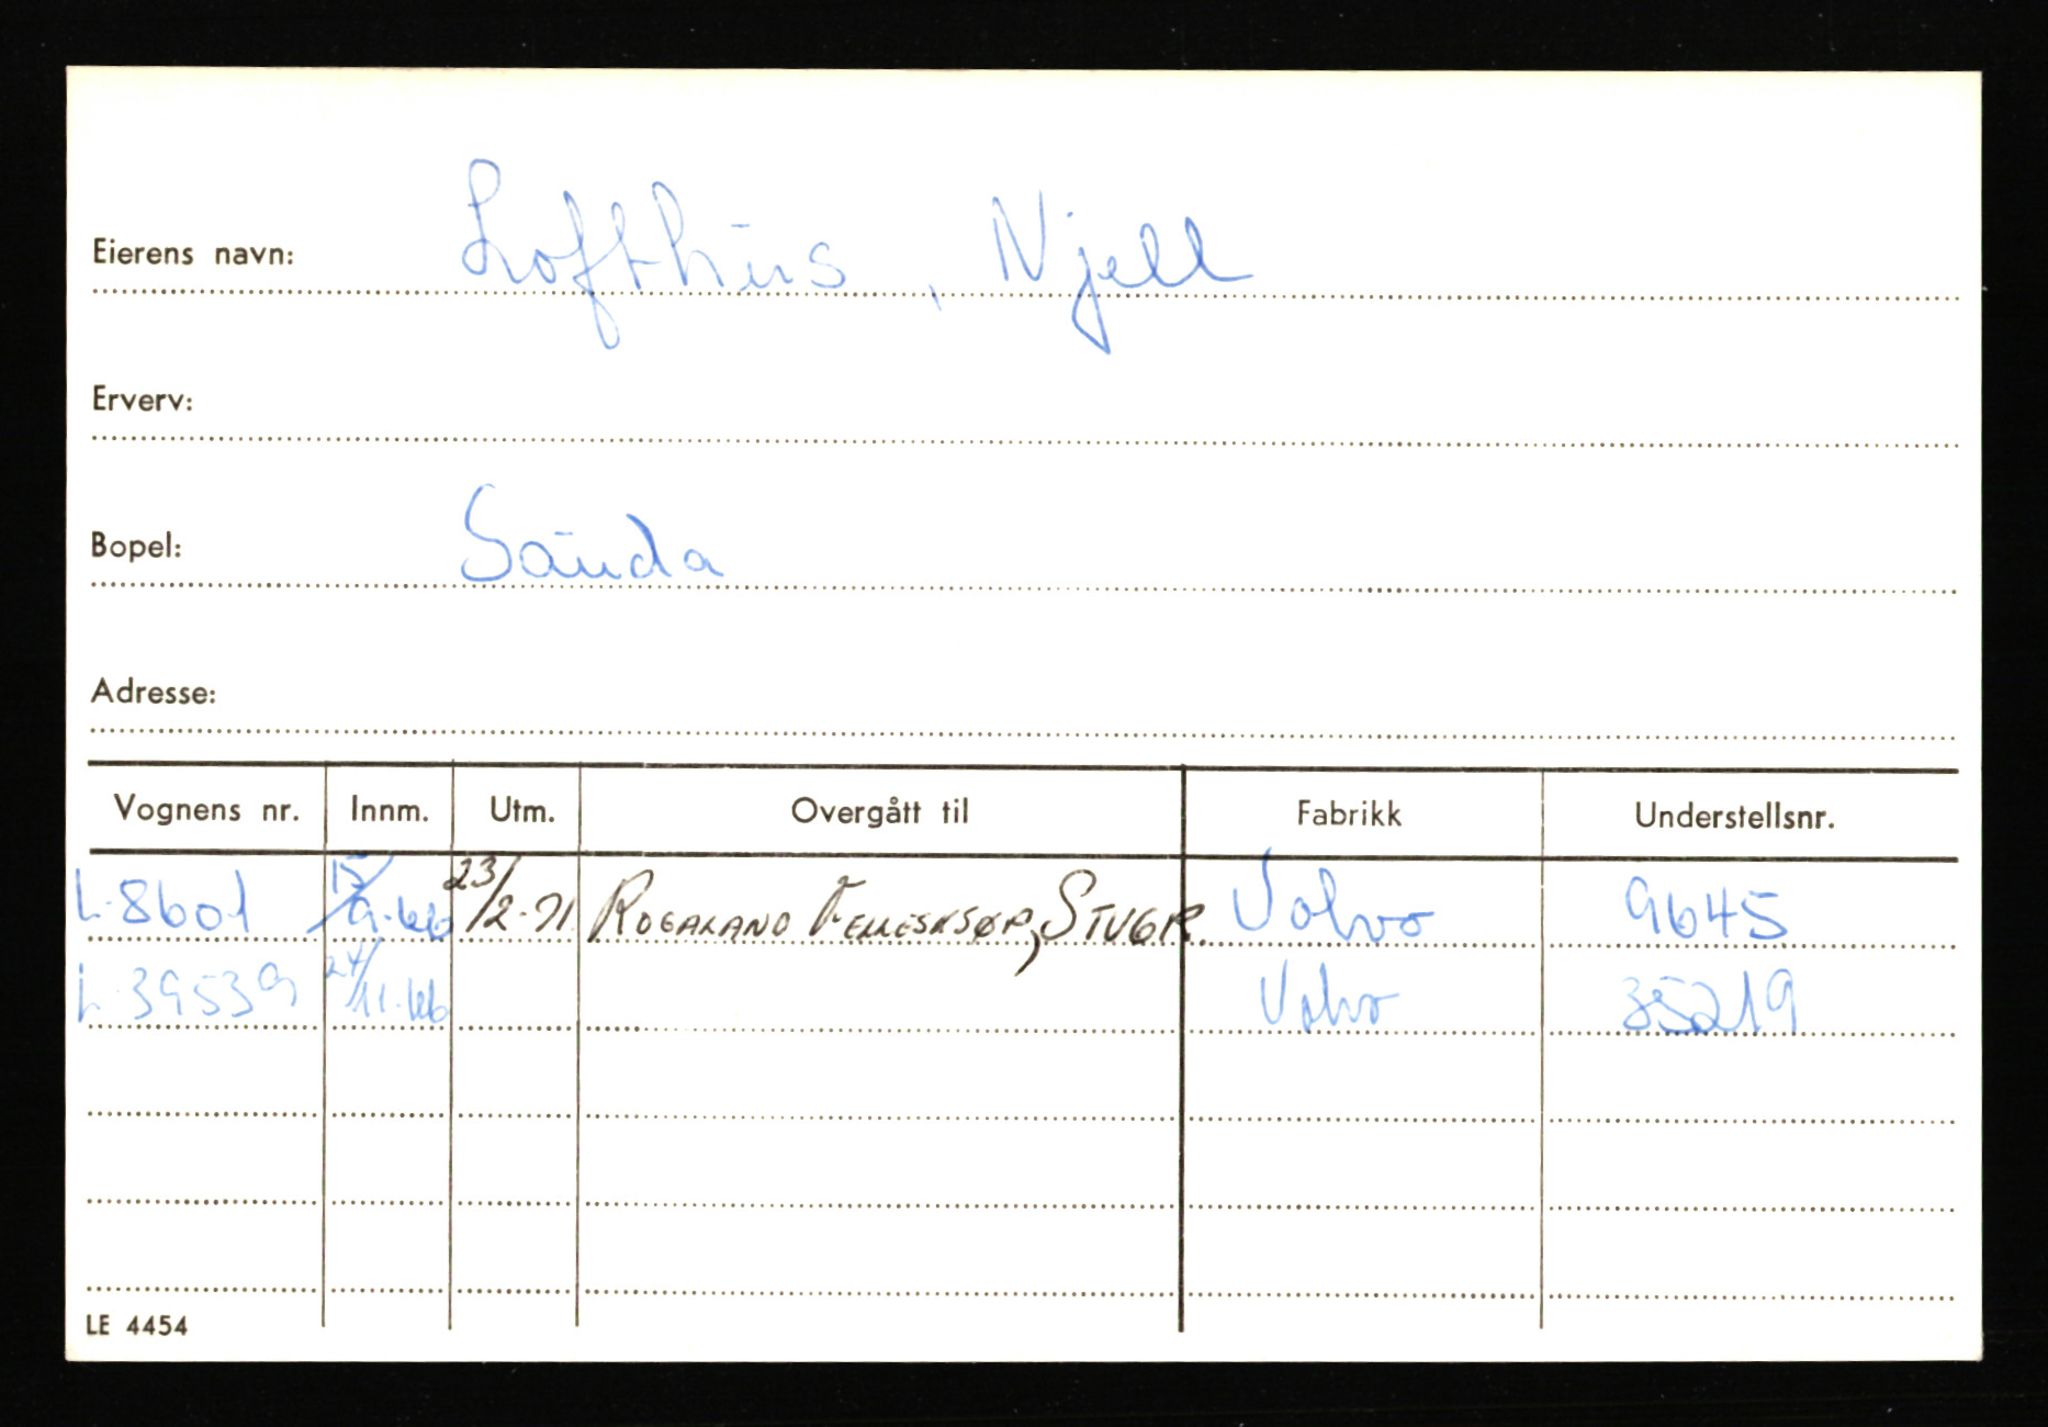 Eierens navn: Lofthus, Njell
Erverv:
Bopel: Sauda
Adresse:
Vognens nr. Innm. Utm. Overgått til Fabrikk Understellsnr.
L-8601 15/9-66 23/2-71 ROGALAND FELLESKJØP, STVGR. Volvo 9645
L-39539 24/11-66 Volvo 35219
LE 4454